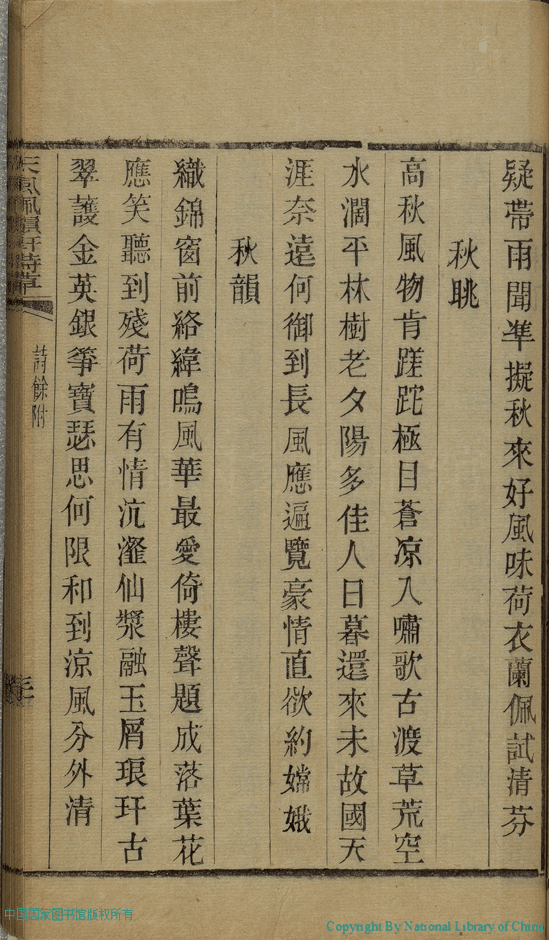 疑帶雨聞準擬秋來好風味荷衣蘭佩試清芬
秋眺
高秋風物肯蹉跎極目蒼凉入嘯歌古渡草荒空
水濶平林樹老夕陽多佳人日暮還來未故國天
涯奈遠何御到長風應遍覽豪情直欲約嫦娥
秋韻
織錦窗前絡緯鳴風華最愛倚樓聲題成落葉花
應笑聽到殘荷雨有情沆瀣仙漿融玉屑琅玕古
翠護金英銀箏寶瑟思何限和到涼風分外清
詩餘附
中国国家图书馆版权所有
Copyright By National Library of China